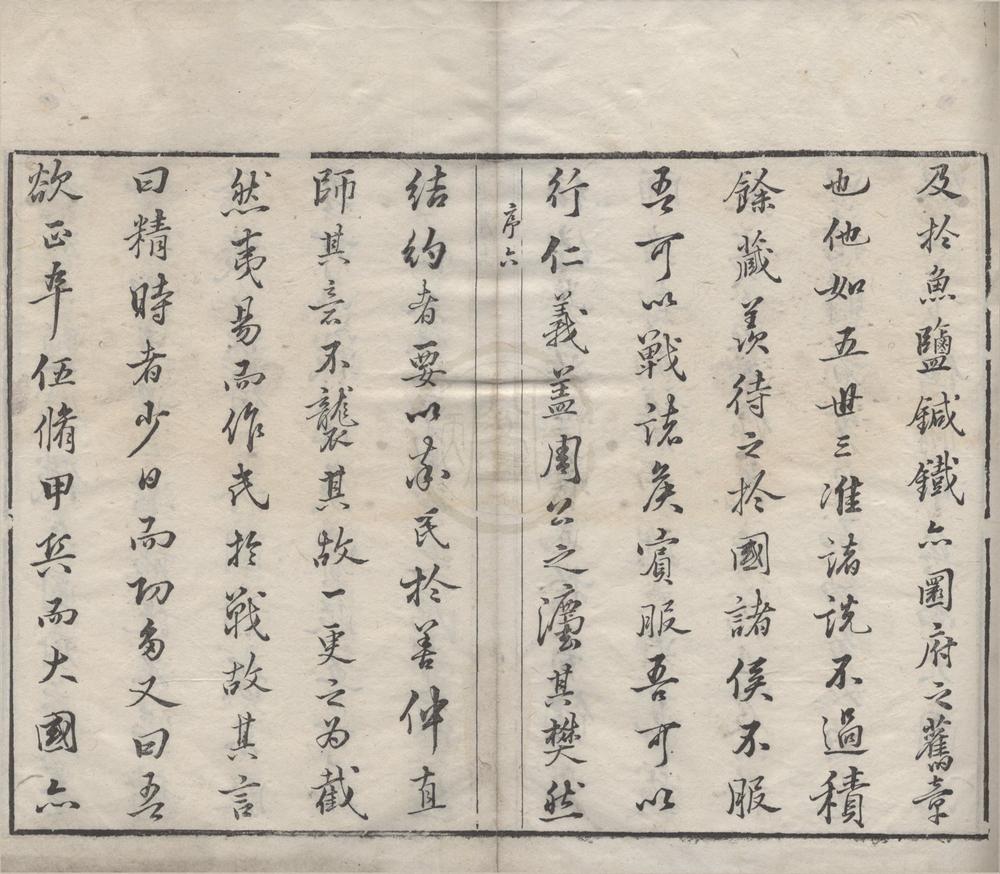 及扵魚鹽鍼鐵亦圜府之舊章
也他如五世三准諸說不過積
餘藏羨待之扵國諸侯不服
吾可以戰諸矦賓服吾可以
行仁義盖周公之灋其樊然
序六
結約者要以奉民扵善仲直
師其意不襲其故一更之為截
然夷易而作民扵戰故其言
曰精時者少日而功多又曰吾
欲正卒伍脩甲兵而大國亦